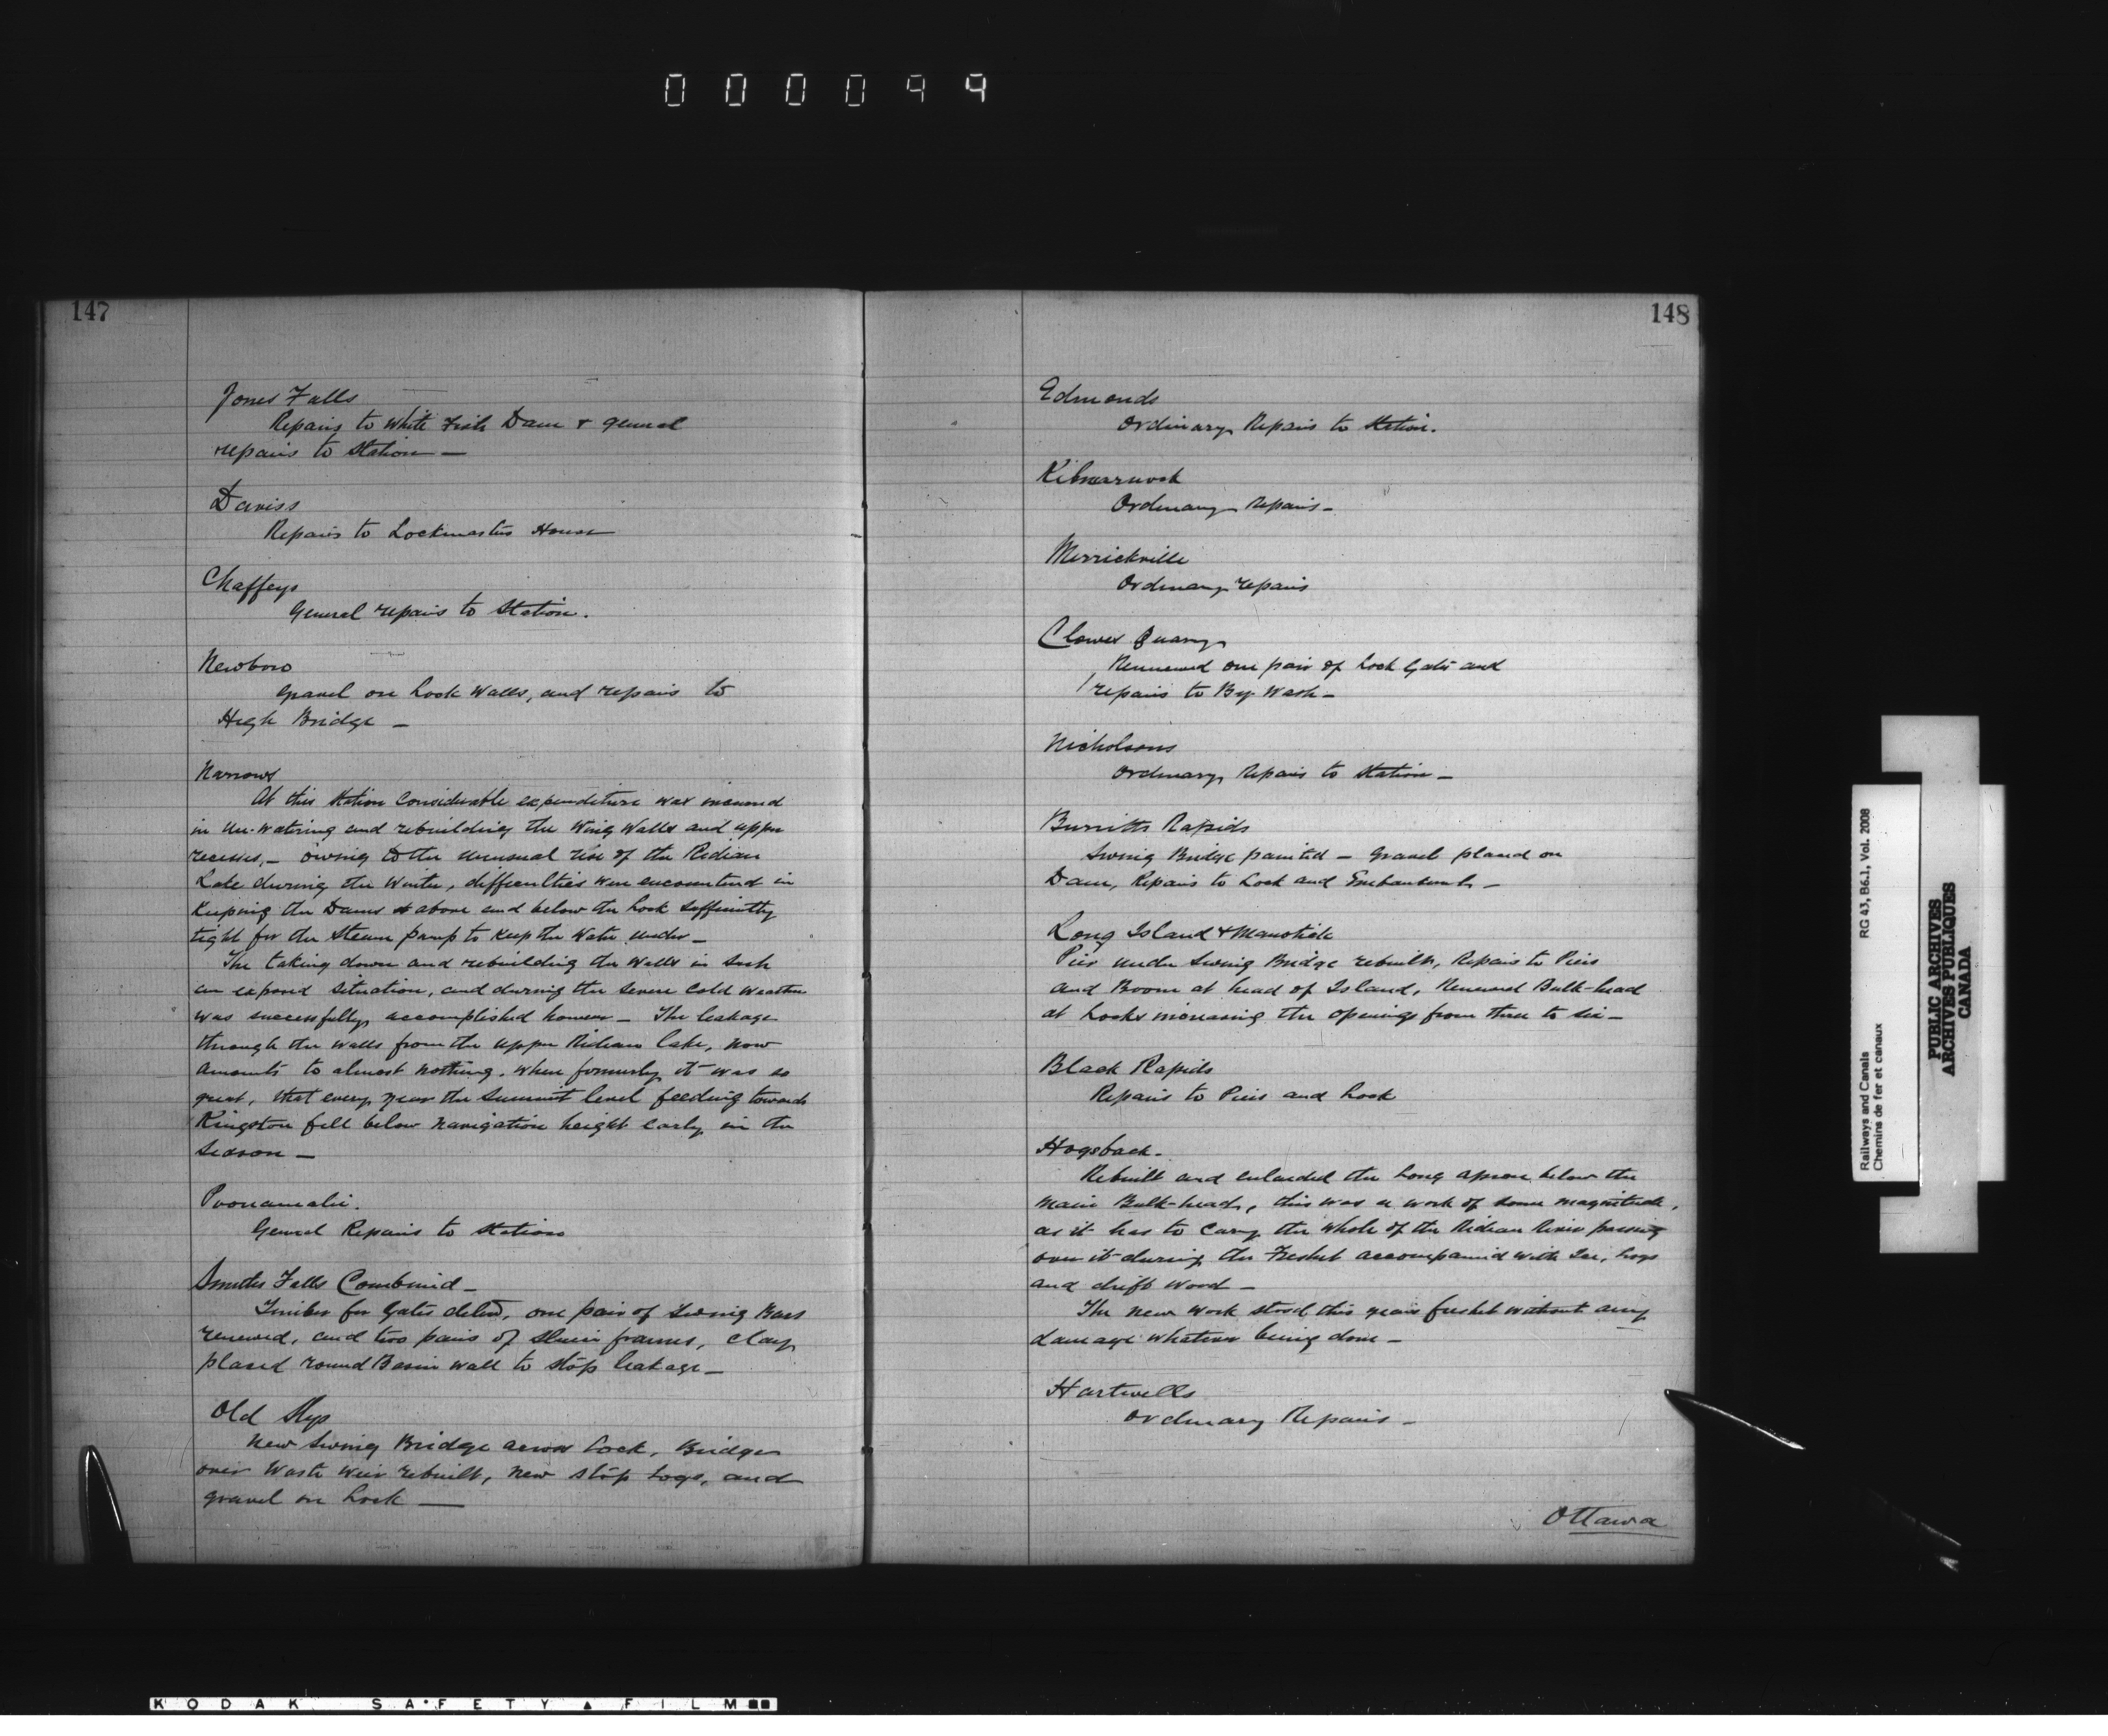 000099
147
Jones Falls
Repairs to White Fish Dam & general
repairs to Station —
Daviss
Repairs to Lockmasters House
Chaffeys
General repairs to Station.
Newboro
Gravel on Lock Walls, and repairs to
High Bridge —
Narrows
At this Station considerable expenditure was incurred
in un-watering and rebuilding the Wing Walls and upper
recesses, — owing to the unusual rise of the Rideau
Lake during the Winter, difficulties were encountered in
keeping the Dams above and below the Lock sufficiently
tight for the Steam pump to keep the Water under —
The taking down and rebuilding the Walls in such
an exposed situation, and during the severe cold weather
was successfully accomplished however — The leakage
through the walls from the upper Rideau lake, now
amounts to almost nothing, when formerly it was so
great, that every year the Summit level feeding towards
Kingston fell below navigation height early in the
Season —
Poonamalie.
General Repairs to Station
Smiths Falls Combined —
Timber for Gates deld, one pair of Swing Bars
renewed, and two pairs of Sluice frames, clay
placed round Basin wall to stop leakage —
Old Slys
New Swing Bridge across Lock, Bridge
over Waste Weir rebuilt, new stop logs, and
gravel on Lock —
148
Edmonds
Ordinary Repairs to Station.
Kilmarnock
Ordinary Repairs —
Merrickville
Ordinary repairs
Clowes Quarry
Renewed one pair of Lock Gates and
repairs to By-Wash —
Nicholsons
Ordinary Repairs to Station —
Burritts Rapids
Swing Bridge painted — Gravel placed on
Dam, Repairs to Lock and Embankment —
Long Island & Manotick
Pier under Swing Bridge rebuilt, Repairs to Piers
and Boom at head of Island, Renewed Bulk-head
at Locks increasing the openings from three to six —
Black Rapids
Repairs to Piers and Lock
Hogsback —
Rebuilt and extended the long apron below the
main Bulk-head, this was a work of some magnitude,
as it has to carry the whole of the Rideau River passing
over it during the Freshet accompanied with Ice, logs
and drift wood —
The new work stood this years freshet without any
damage whatever being done —
Hartwells
Ordinary Repairs —
Ottawa
Railways and Canals
Chemins de fer et canaux
RG 43, B6.1, Vol. 2008
PUBLIC ARCHIVES
ARCHIVES PUBLIQUES
CANADA
KODAK SAFETY ▲ FILM